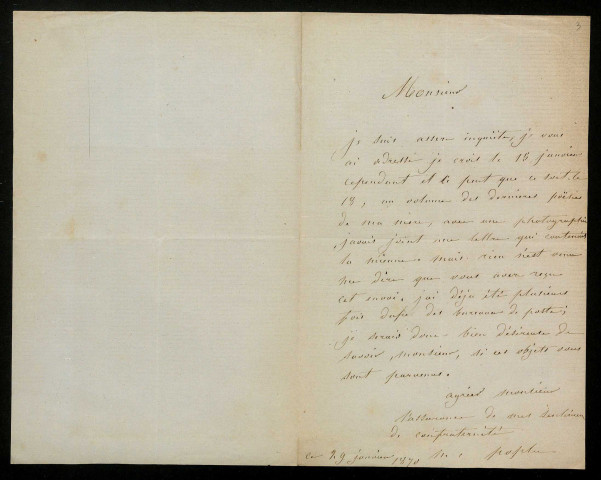 3
Monsieur
je suis assez inquiète, je vous
ai adressé je crois le 15 janvier
cependant il se peut que ce soit le
13, un volume des dernières poësies
de ma mère, avec une photographie
j'avais joint une lettre qui contenait
la mienne. mais rien n'est venu
me dire que vous avez reçu
cet envoi. j'ai déja été plusieurs
fois dupe des bureaux de poste;
je serais donc bien désireuse de
savoir, monsieur, si ces objets vous
sont parvenus.
agréez monsieur
l'assurance de mes
de confraternité
ce 29 janvier 1870